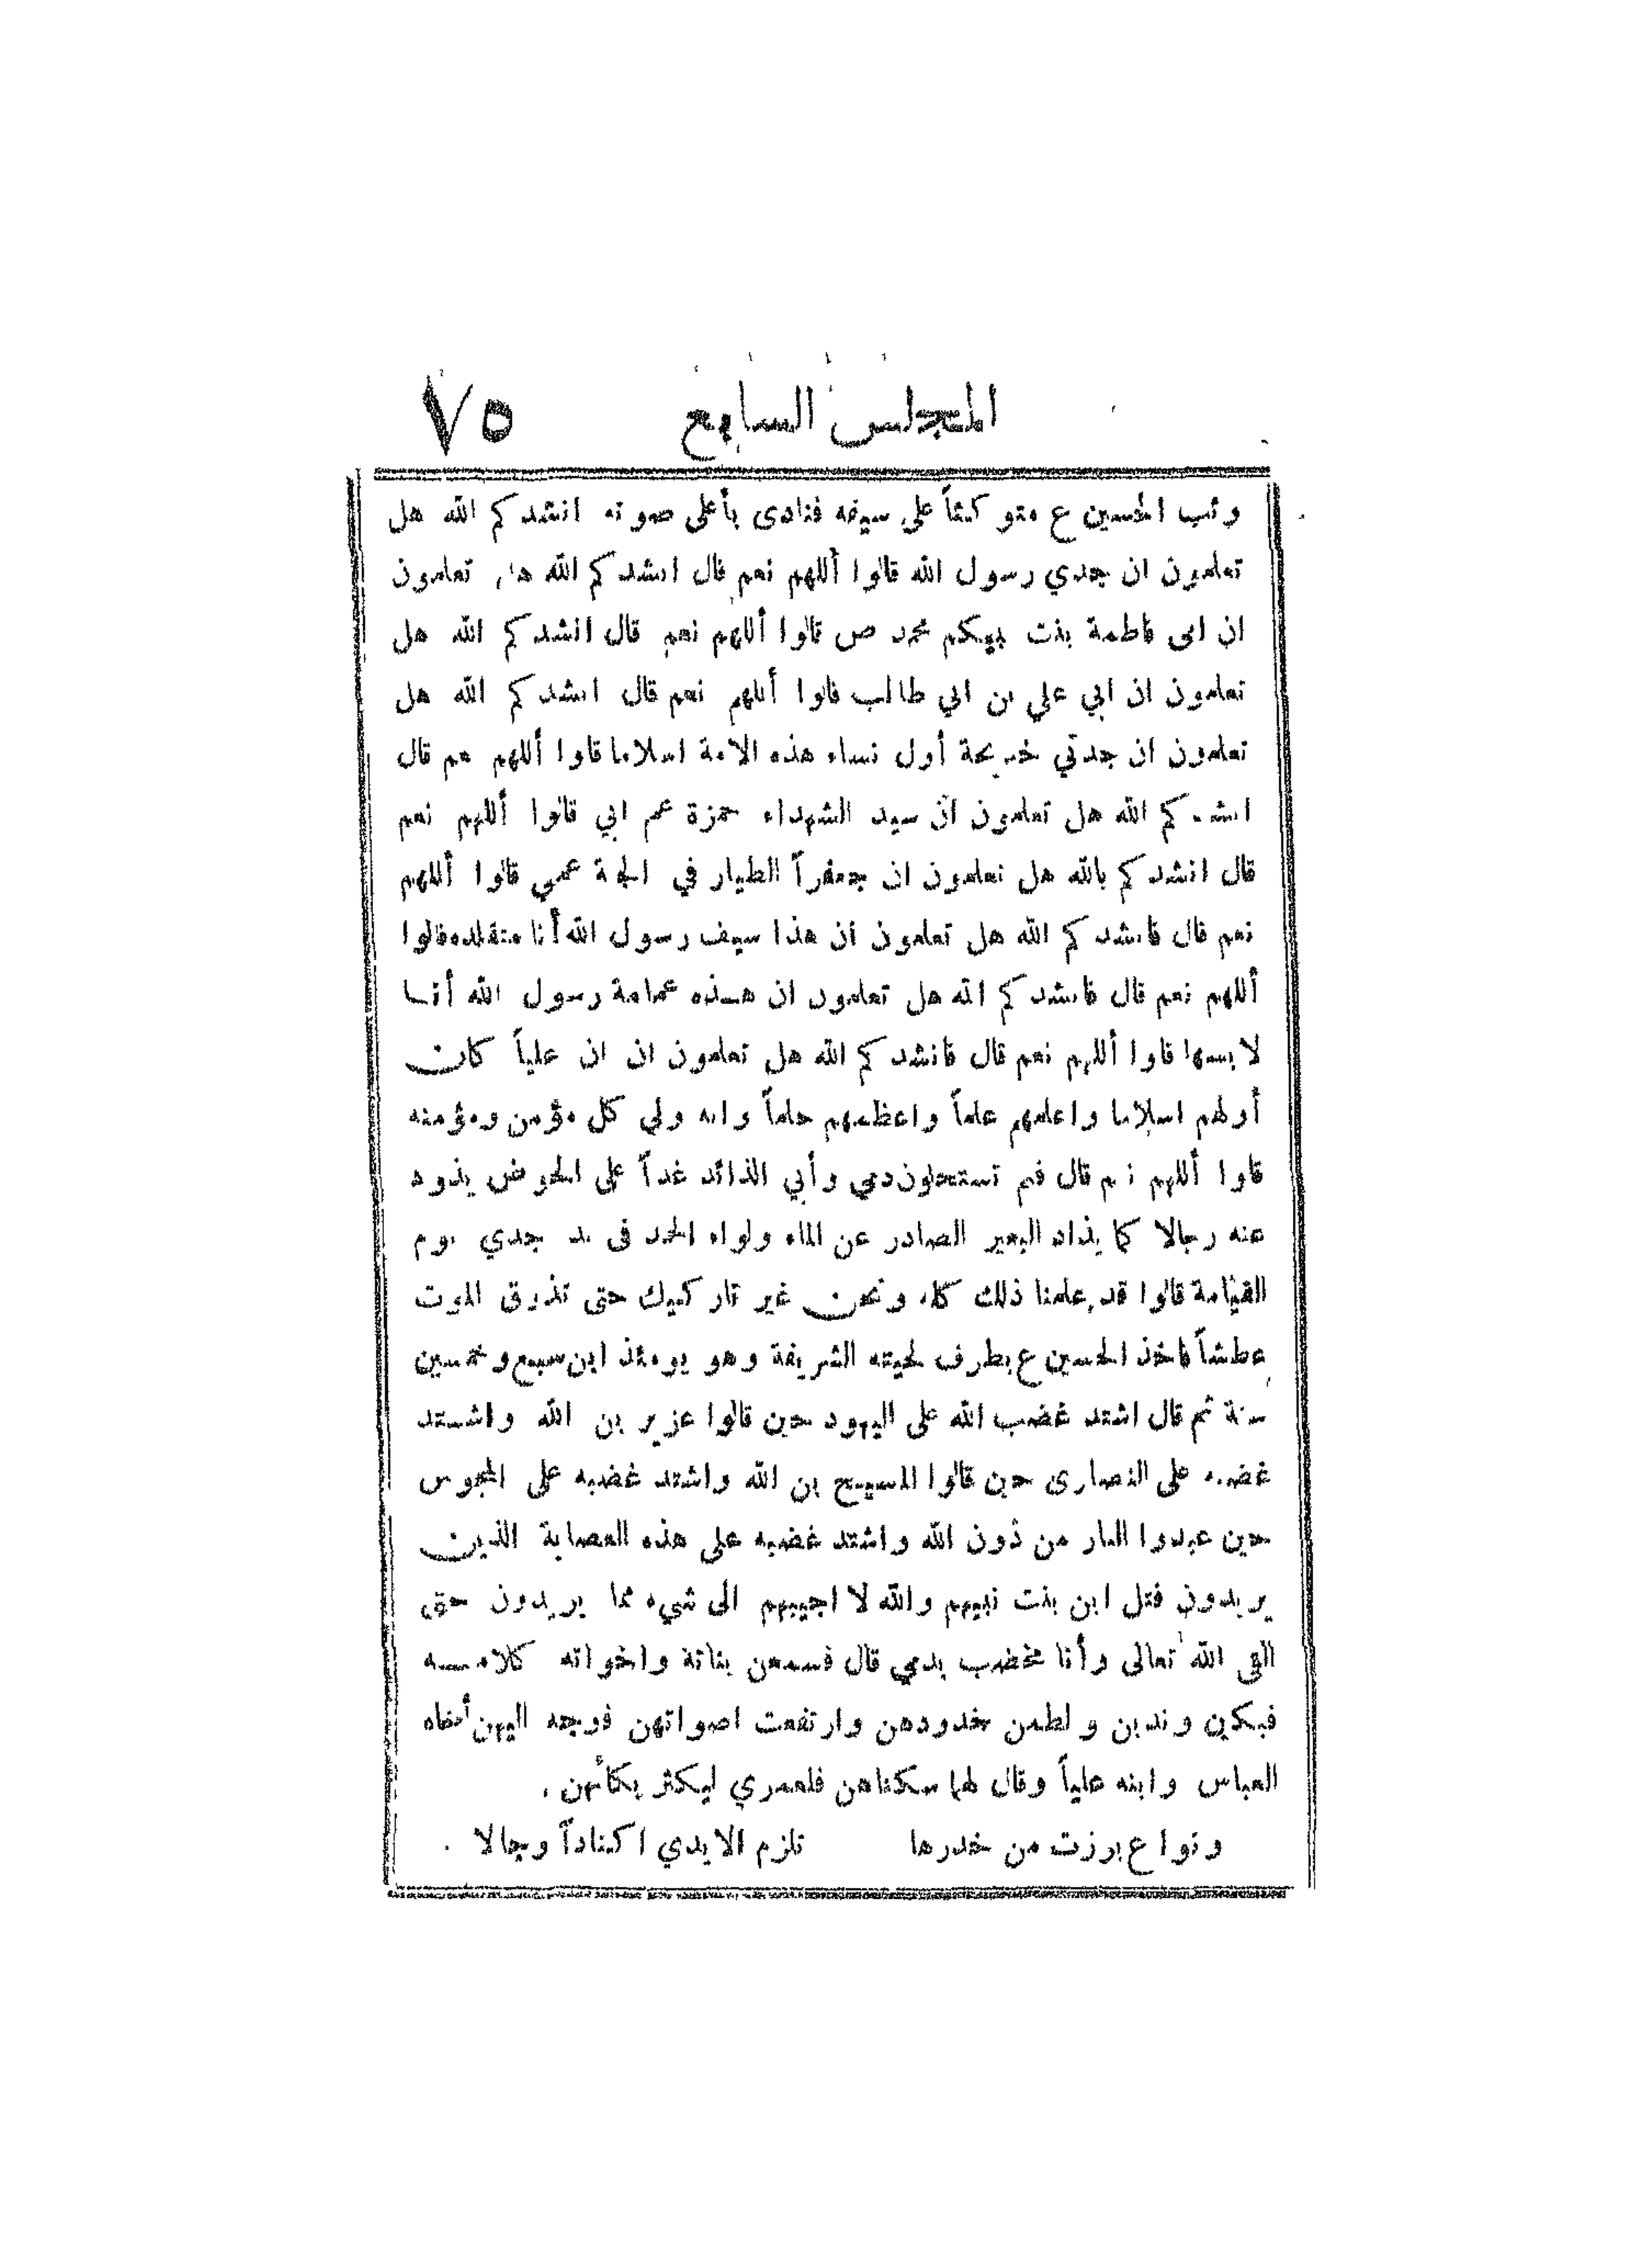 المجلس السابع ٧٥
وثب الحسين ع متوكئاً على سيفه فنادى بأعلى صوته انشدكم الله هل
تعلمون ان جدي رسول الله قالوا أللهم نعم قال انشدكم الله هل تعلمون
ان امي فاطمة بنت نبيكم محمد ص قالوا أللهم نعم قال انشدكم الله هل
تعلمون ان ابي علي بن ابي طالب قالوا أللهم نعم قال انشدكم الله هل
تعلمون ان جدتي خديجة أول نساء هذه الامة اسلاما قالوا أللهم نعم قال
انشدكم الله هل تعلمون ان سيد الشهداء حمزة عم ابي قالوا أللهم نعم
قال انشدكم بالله هل تعلمون ان جعفراً الطيار في الجنة عمي قالوا أللهم
نعم قال فانشدكم الله هل تعلمون ان هذا سيف رسول الله أنا متقلده قالوا
أللهم نعم قال فانشدكم الله هل تعلمون ان هذه عمامة رسول الله أنا
لابسها قالوا أللهم نعم قال فانشدكم الله هل تعلمون ان ان علياً كان
أولهم اسلاما واعلمهم علماً واعظمهم حلماً وانه ولي كل مؤمن ومؤمنه
قالوا أللهم نعم قال فبم تستحلون دمي وأبي الذائد غداً على الحوض يذود
عنه رجالا كما يذاد البعير الصادر عن الماء ولواء الحمد في يد جدي يوم
القيامة قالوا قد علمنا ذلك كله ونحن غير تاركيك حتى تذوق الموت
عطشاً فاخذ الحسين ع بطرف لحيته الشريفة وهو يومئذ ابن سبع وخمسين
سنة ثم قال اشتد غضب الله على اليهود حين قالوا عزير بن الله واشتد
غضبه على النصارى حين قالوا المسيح بن الله واشتد غضبه على المجوس
حين عبدوا النار من دون الله واشتد غضبه على هذه العصابة الذين
يريدون قتل ابن بنت نبيهم والله لا اجيبهم الى شيء مما يريدون حتى
القى الله تعالى وأنا مخضب بدمي قال فسمعن بناتة واخواته كلامه
فبكين وندبن ولطمن خدودهن وارتفعت اصواتهن فوجه اليهن أخاه
العباس وابنه علياً وقال لهما سكتاهن فلعمري ليكثر بكائهن .
ونواع برزت من خدرها تلزم الايدي اكباداً وجالا .